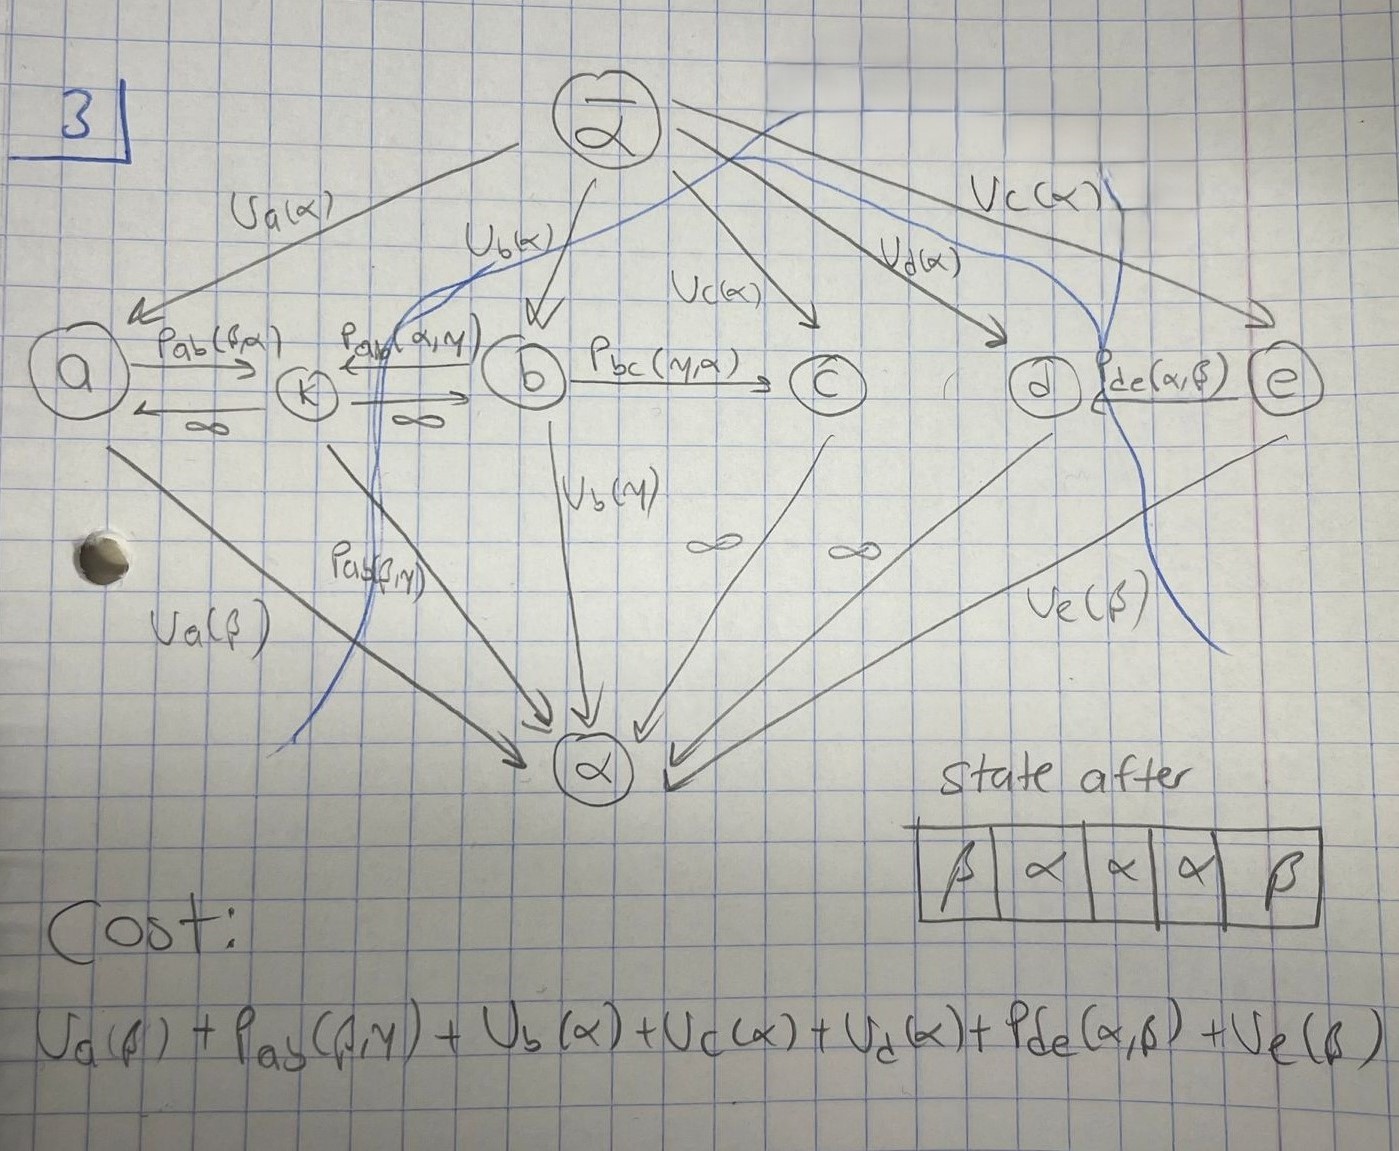 3
ᾱ
Ua(α)
Ub(α)
Uc(α)
Ud(α)
Uc(α)
a
Pab(β,α)
∞
k
Pab(α,γ)
∞
b
Pbc(γ,α)
c
d
Pde(α,β)
e
Ua(β)
Pab(β,γ)
Ub(γ)
∞
∞
Ue(β)
α
state after
β α α α β
Cost:
Ua(β) + Pab(β,γ) + Ub(α) + Uc(α) + Ud(α) + Pde(α,β) + Ue(β)